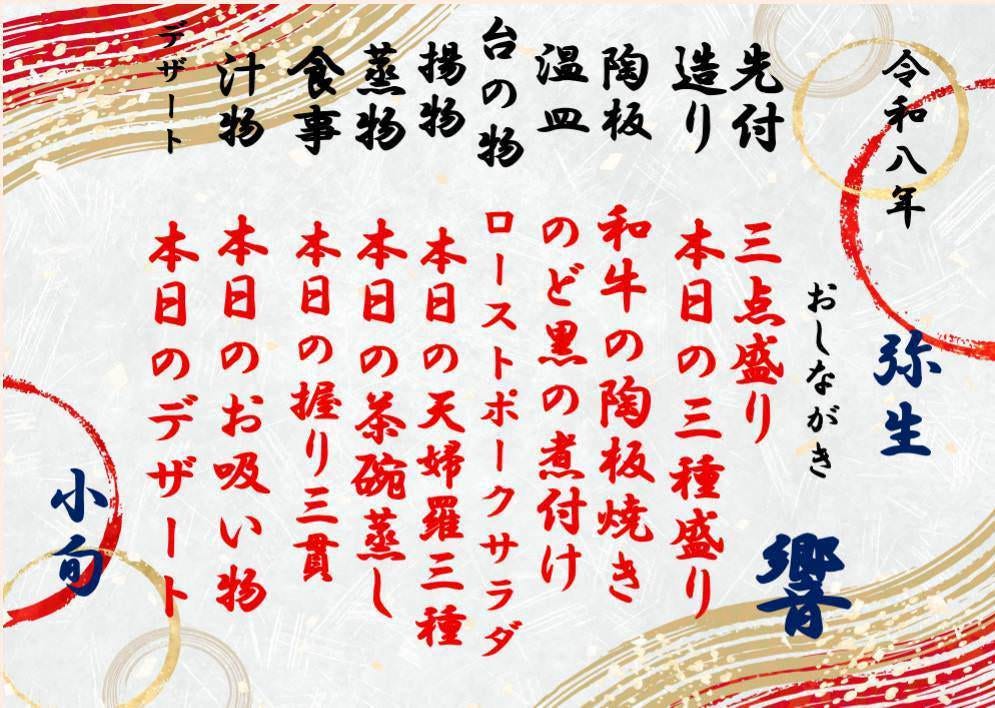 令和八年
弥生
おしながき
響
先付
三点盛り
造り
本日の三種盛り
陶板
和牛の陶板焼き
温皿
のど黒の煮付け
台の物
ローストポークサラダ
揚物
本日の天婦羅三種
蒸物
本日の茶碗蒸し
食事
本日の握り三貫
汁物
本日のお吸い物
デザート
本日のデザート
小旬